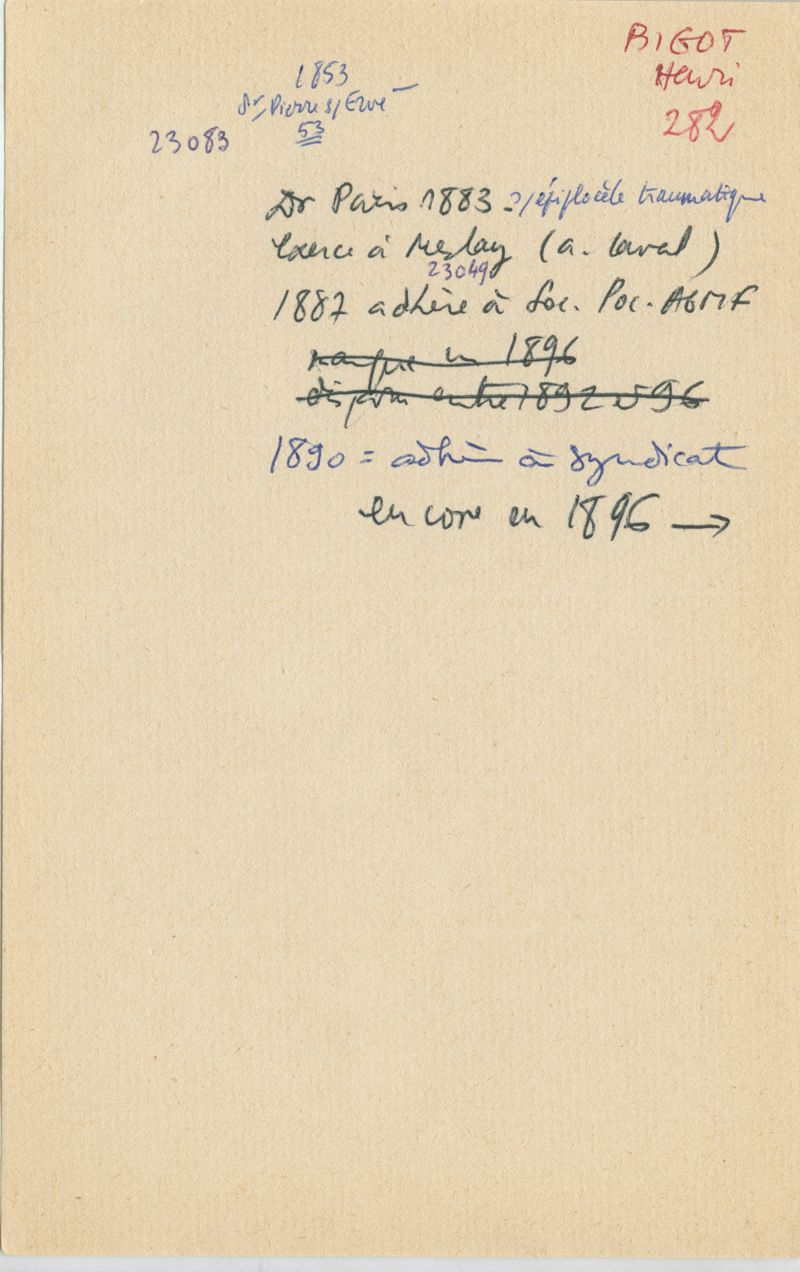 BIGOT
Henri
282
1853
St, Pierre s/ Erve
23083
53
Dr Paris 1883 - ?/ épiplocèle traumatique
Exerce à Meslay (a. Laval)
23049
1887 adhère à Soc. Loc. AGMF
manque en 1896
disparu entre 1892 et 96
1890 = adhère à syndicat
encore en 1896 →